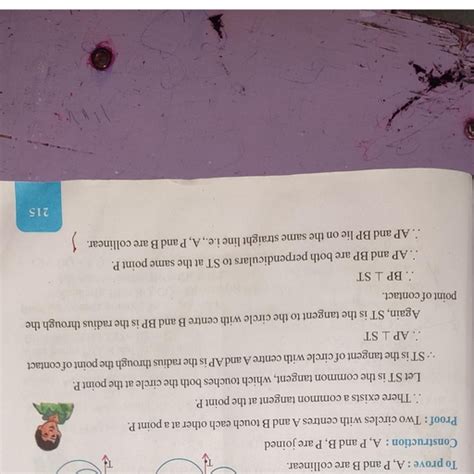 T
T
To prove : A, P and B are collinear.
Construction : A, P and B, P are joined
Proof : Two circles with centres A and B touch each other at a point P.
∴ There exists a common tangent at the point P.
Let ST is the common tangent, which touches both the circle at the point P.
∵ ST is the tangent of circle with centre A and AP is the radius through the point of contact
∴ AP ⊥ ST
Again, ST is the tangent to the circle with centre B and BP is the radius through the
point of contact.
∴ BP ⊥ ST
∴ AP and BP are both perpendiculars to ST at the same point P.
∴ AP and BP lie on the same straight line i.e., A, P and B are collinear.
215